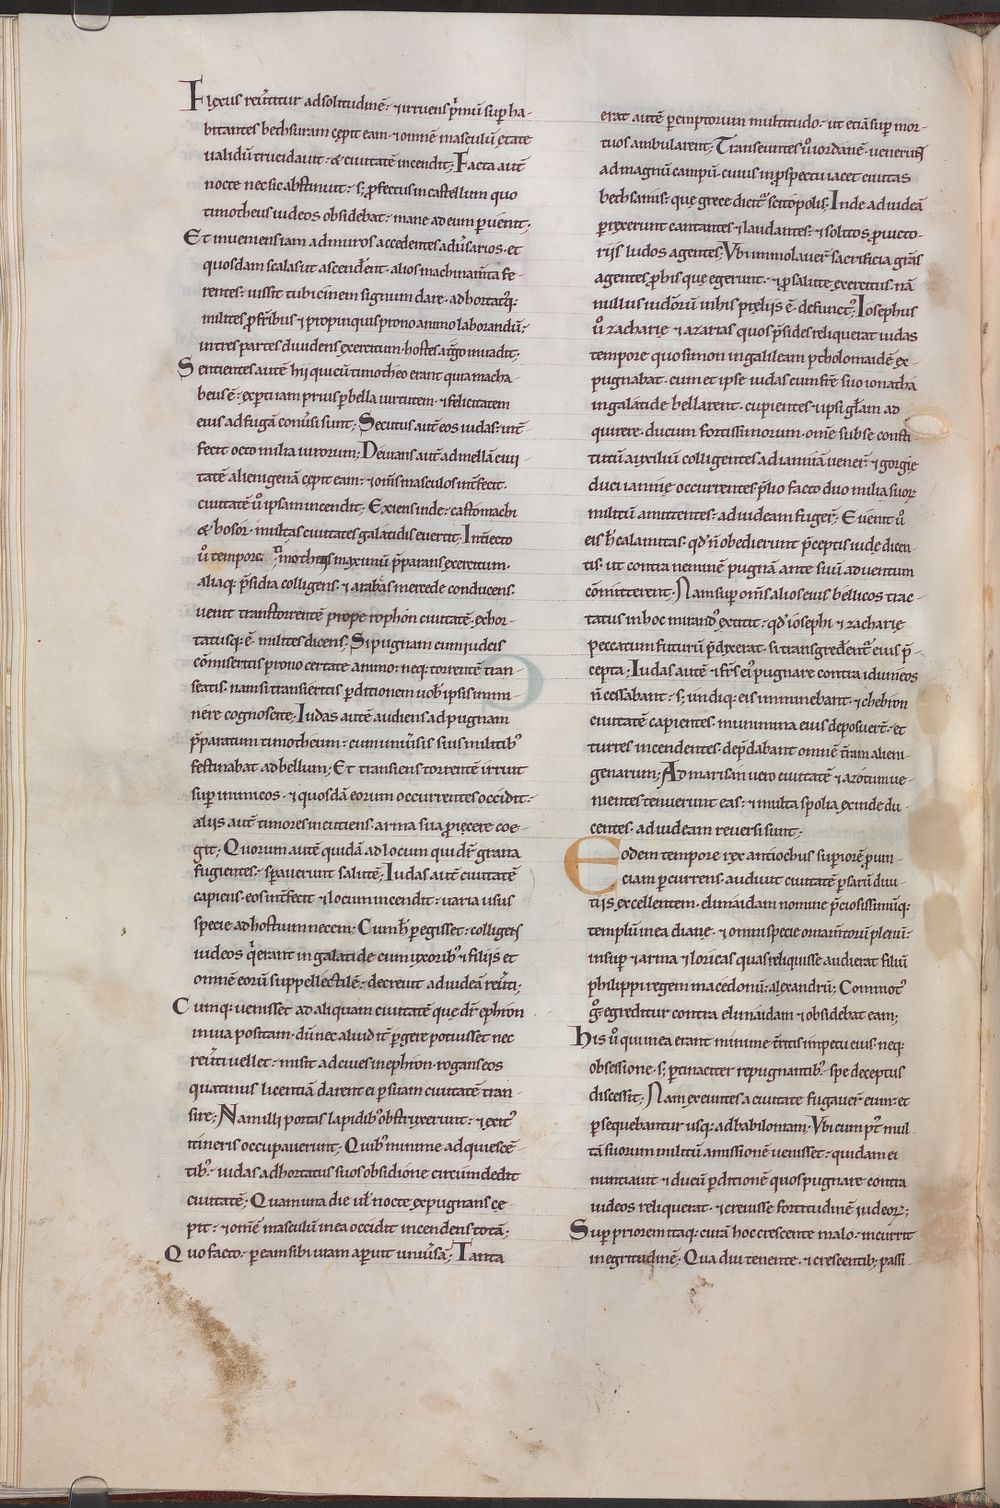 Flexus reu͛titur ad solitudinē· ⁊ irruens p̓mū sup̱ ha-
bitantes bethsuram cępit eam· ⁊ omnē masculū ętate
ualidū trucidauit· & ciuitatē incendit; Facta aut̄
nocte nec sic abstinuit· s; ꝓfectus in castellum quo
timotheus iudeos obsidebat· mane ad eum p̱uenit;
Et inueniens iam ad muros accedentes adu͛sarios· et
quosdam scalas ut ascenderent· alios machinam̄ta fe-
rentes· iussit tubicinem signum dare· adhortatusq;
milites ꝓ fr̄ibus ⁊ propinquis prono animo laborandū·
in tres partes diuidens exercitum· hostes a tergo inuadit;
Sentientes autē hij qui cū timotheo erant quia macha-
beus ē· experti iam prius p̱ bella uirtutem· ⁊ felicitatem
eius ad fugā conu͛si sunt; Secutus aut̄ eos iudas· int̄-
fecit octo milia uirorum; Deuians aut̄ ad mellā ciui-
tatē alienigenā cępit eam· ⁊ om̄s masculos int̄fecit·
ciuitatē u͛o ipsam incendit; Exiens inde· castomachi
& bosor· multas ciuitates galatidis euertit; Int̄iecto
u͛o tempore timotheus maximū p̄parans exercitum·
aliaq; p̄sidia colligens· ⁊ arabas mercede conducens·
uenit trans torrentē prope rophon ciuitatē· exhor-
tatusq; ē milites dicens; Si pugnam cum iudeis
cōmiseritis prono certate animo· neq; torrentē tran-
seatis· nam si transieritis p̱ditionem uob̄ ipsis immi-
nere cognoscite; Iudas autē audiens ad pugnam
p̄paratum timotheum· cum iniu͛sis suis militibꝰ
festinabat ad bellum; Et transiens torrentē irruit
sup̱ inimicos· ⁊ quosdā eorum occurrentes occidit·
alijs aut̄ timores incutiens· arma sua proięcere coe-
git; Quorum autē quidā ad locum qui dr̄ grana
fugientes· sp̱auerunt salutē; Iudas aut̄ ciuitatē
capiens· eos int̄fecit ⁊ locum incendit· uaria usus
specie ad hostium necem; Cum h̄ p̱egisset· colligens
iudeos q̓ erant in galatide cum uxoribꝰ ⁊ filijs et
omnē eorū suppellectilē· decreuit ad iudeā reu͛ti;
Cumq; uenisset ad aliquam ciuitatē que dr̄ ephron
in uia positam· dū nec aliud it̄ p̱gere potuisset nec
reu͛ti uellet· misit ad ciues in ephron· rogans eos
quatinus licentiā darent ei p̱ suam ciuitatē tran-
sire; Nam illi portas lapidibꝰ obstruxerunt· ⁊ exitꝰ
itineris occupauerunt; Quibꝰ minime adquiescē-
tibꝰ· iudas adhortatus suos obsidione circumdedit
ciuitatē; Quam una die ul̄ nocte expugnans cę-
pit· ⁊ omē masculū in ea occidit incendens totā;
Quo facto· p̱ eam sibi uiam aperuit uniu͛sā; Tanta
erat autē p̱emptorum multitudo· ut etiā sup̱ mor-
tuos ambularent; Transeuntes u͛o iordanē· uenerunt
ad magnū campū· cuius in ꝓspectu iacet ciuitas
bethsamis· quę grece dicit᷑ scitopolis; Inde ad iudeā
p̱rexerunt cantantes ⁊ laudantes· ⁊ solitos ꝓ uicto-
rijs ludos agentes; Vbi immolauer̄ sacrificia grās
agentes ꝓ his quę egerunt· ⁊ ꝓ salute exercitus· nā
nullus iudeorū in his pręlijs ē defunctꝰ; Iosephus
u͛o zacharię ⁊ azarias quos p̄sides reliquerat iudas
tempore quo simon in galileam ptholomaidē ex-
pugnabat· cum et ipse iudas cum fr̄e suo ionatha
in galatide bellarent· cupientes ⁊ ipsi gl̄am ad
quirere· ducum fortissimorum· omē sub se consti-
tutū auxiliū colligentes ad iamniā uener̄· ⁊ gorgię
duci iamnię occurrentes· p̄lio facto duo milia suor̄
militū amittentes· ad iudeam fuger̄; Euenit u͛o
eis h̄ calamitas· qd̄ n̄ obedierunt p̄ceptis iudę dicen-
tis· ut contra neminē pugnā ante suū aduentum
cōmitterent; Nam sup̱ om̄s alios eius bellicos trac-
tatus in hoc mirandꝰ extitit· qd̄ iosephi ⁊ zacharię
peccatum futurū p̄dixerat· si transgrederent᷑ eius p̄-
cepta; Iudas autē ⁊ fr̄s ei̓ pugnare contra idumeos
n̄ cessabant· s; undiq; eis imminebant· ⁊ chebron
ciuitatē capientes· munimina eius deposuer̄· et
turres incendentes· dep̄dabant omnē t̄ram alieni-
genarum; Ad marisan uero ciuitatē ⁊ azotum ue-
nientes tenuerunt eas· ⁊ multa spolia exinde du-
centes· ad iudeam reuersi sunt;
Eodem tempore rex antiochus sup̱iorē prouin-
ciam p̱currens· audiuit ciuitatē p̱sarū diui-
tijs excellentem· elimaidam nomine p̄ciosissimūq;
templū in ea dianę· ⁊ omni specie ornam̄torū plenū·
insup̱ ⁊ arma ⁊ loricas quas reliquisse audierat filiū
philippi regem macedonū· alexandrū; Commotꝰ
g̊ egreditur contra elimaidam ⁊ obsidebat eam;
His u͛o qui in ea erant minime t̄ritis impetu eius· neq;
obsessione· s; p̱tinaciter repugnantibꝰ· spe deceptus
discessit; Nam exeuntes a ciuitate fugauer̄ eum· et
p̱sequebantur usq; ad babiloniam· Vbi cum p̱t̄ mul-
tā suorum militū amissionē uenisset· quidam ei
nuntiauit ⁊ ducū p̱ditionē quos pugnare contra
iudeos reliquerat· ⁊ creuisse fortitudinē iudeor̄;
Sup̱ priorem itaq; curā hoc crescente malo· incurrit
in egritudinē; Qua diu tenente· ⁊ crescentib; passi-